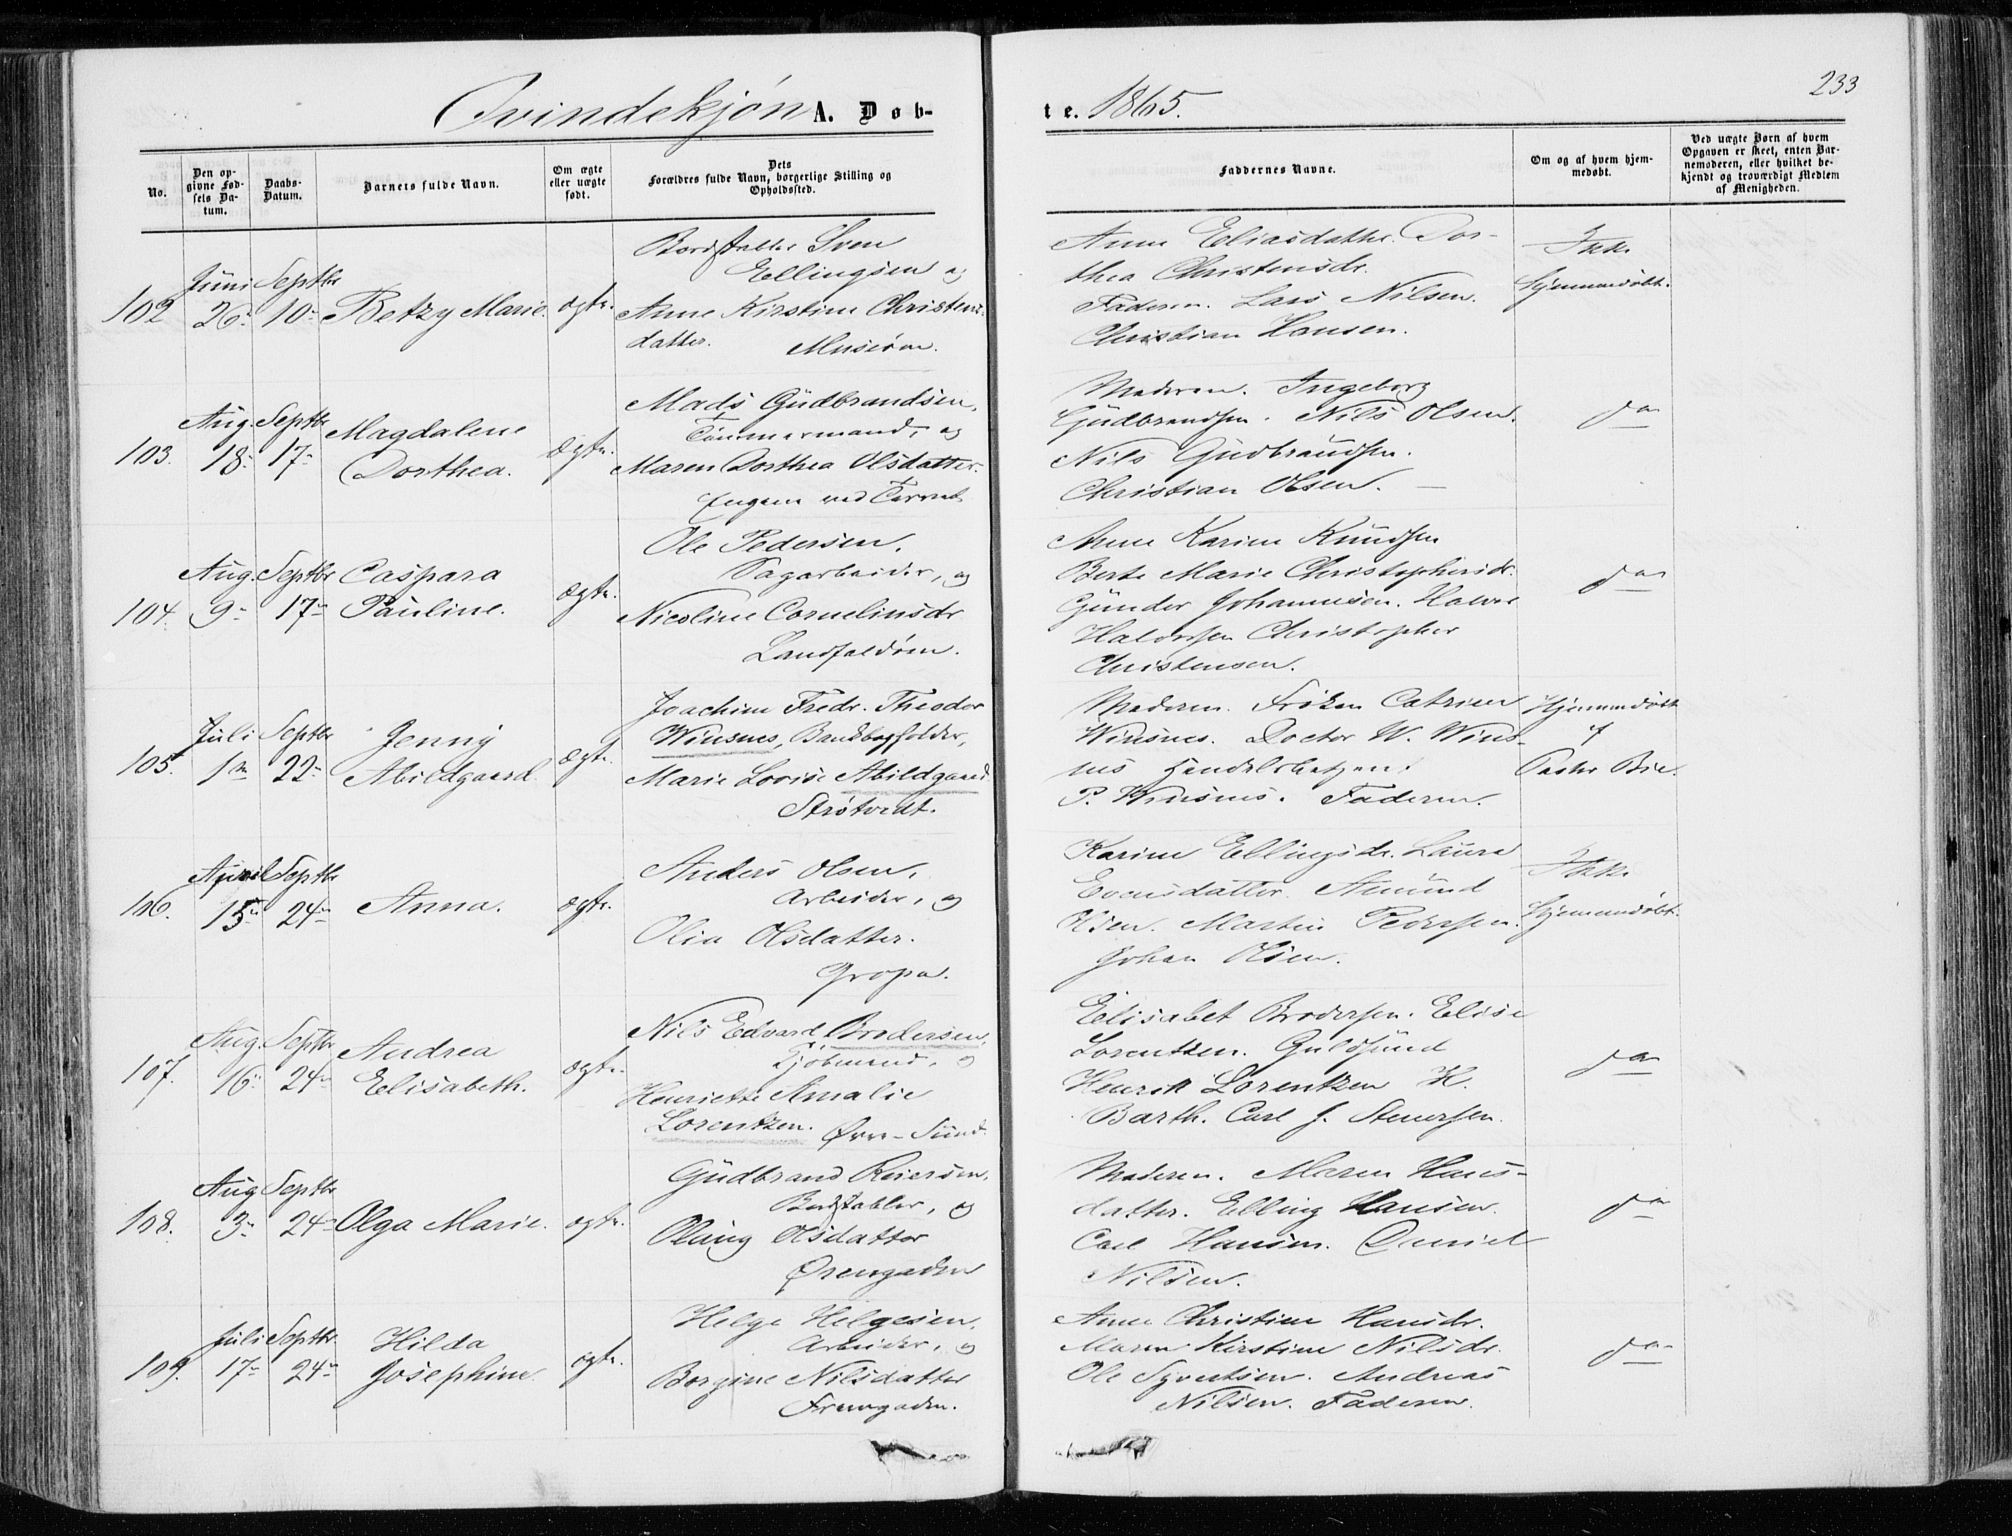 233
Qvindekjøn A. Døb-
te. 1865.
No.
Den op-
givne Fød-
sels Da-
tum.
Daabs-
Datum.
Barnets fulde Navn.
Om ægte
eller uægte
født.
Dets
Forældres fulde Navn, borgerlige Stilling og
Opholdssted.
Faddernes Navne.
Om og af hvem hjem-
medøbt.
Ved uægte Børn af hvem
Opgaven er skeet, enten Bar-
nemoderen, eller hvilket be-
kjendt og troværdigt Medlem
af Menigheden.
102
Juni
26
Septbr
10
Betzy Marie.
ægte.
Bordstabler Sven
Ellingsen og
Anne Kirstine Christens-
datter.
Anne Eliasdatter. Dor-
thea Christensdr.
Faderen. Lars Nilsen.
Christian Hansen.
Ikke
Hjemmedøbt.
103.
Aug.
18
Septbr
17
Magdalene
Dorthea.
ægte.
Mads Gudbrandsen,
Tømmermand, og
Maren Dorthea Olsdatter.
Engene ved
Moderen. Ingeborg
Gudbrandsen. Nils Olsen.
Nils Gudbrandsen.
Christian Olsen.
do
104.
Aug.
9
Septbr
17
Caspara
Pauline.
ægte.
Ole Pedersen,
Sagarbeider, og
Nicoline Corneliusdr
Landfaldøen.
Anne Karine Knudsen
Berte Marie Christophersdr.
Gunder Johannesen. Halvor
Halvorsen Christopher
Christensen.
do
105.
Juli
1
Septbr
22
Jenny
Abildgaard.
ægte.
Joachim Fredr. Theodor
Winsnes,
Marie Lovise Abildgaard
Strøtvedt.
Moderen. Frøken Catrine
Winsnes. Doctor W. Wins-
nes
P. Winsnes. Faderen.
Hjemmedøbt
af
Pastor Bie.
106.
April
15
Septbr
24
Anna.
ægte.
Anders Olsen,
Arbeider, og
Olia Olsdatter.
Gropa.
Karine Ellingsdr. Laura
Evensdatter.
Olsen. Martin Pedersen.
Johan Olsen.
Ikke
Hjemmedøbt.
107.
Aug.
16
Septbr
24
Andrea
Elisabeth.
ægte.
Nils Edvard Brodersen,
Kjøbmand, og
Henriette Amalie
Lorentzen. Øvre-Sund.
Elisabet Brodersen. Elise
Lorentzen. Guldsund
Henrik Lorentzen H.
Barth. Carl J. Stenersen.
do
108.
Aug
3
Septbr
24
Olga Marie.
ægte.
Gudbrand Reiersen,
Bordstabler, og
Olaug Olsdatter
Ørengaden
Moderen. Maren Hans-
datter. Elling Hansen.
Carl Hansen. Daniel
Nilsen.
do
109.
Juli
17
Septbr.
24
Hilda
Josephine.
ægte.
Helge Helgesen,
Arbeider, og
Borgine Nilsdatter
Anne Christine Hansdr.
Maren Kirstine Nilsdr.
Ole Syvertsen. Andreas
Nilsen. Faderen.
do